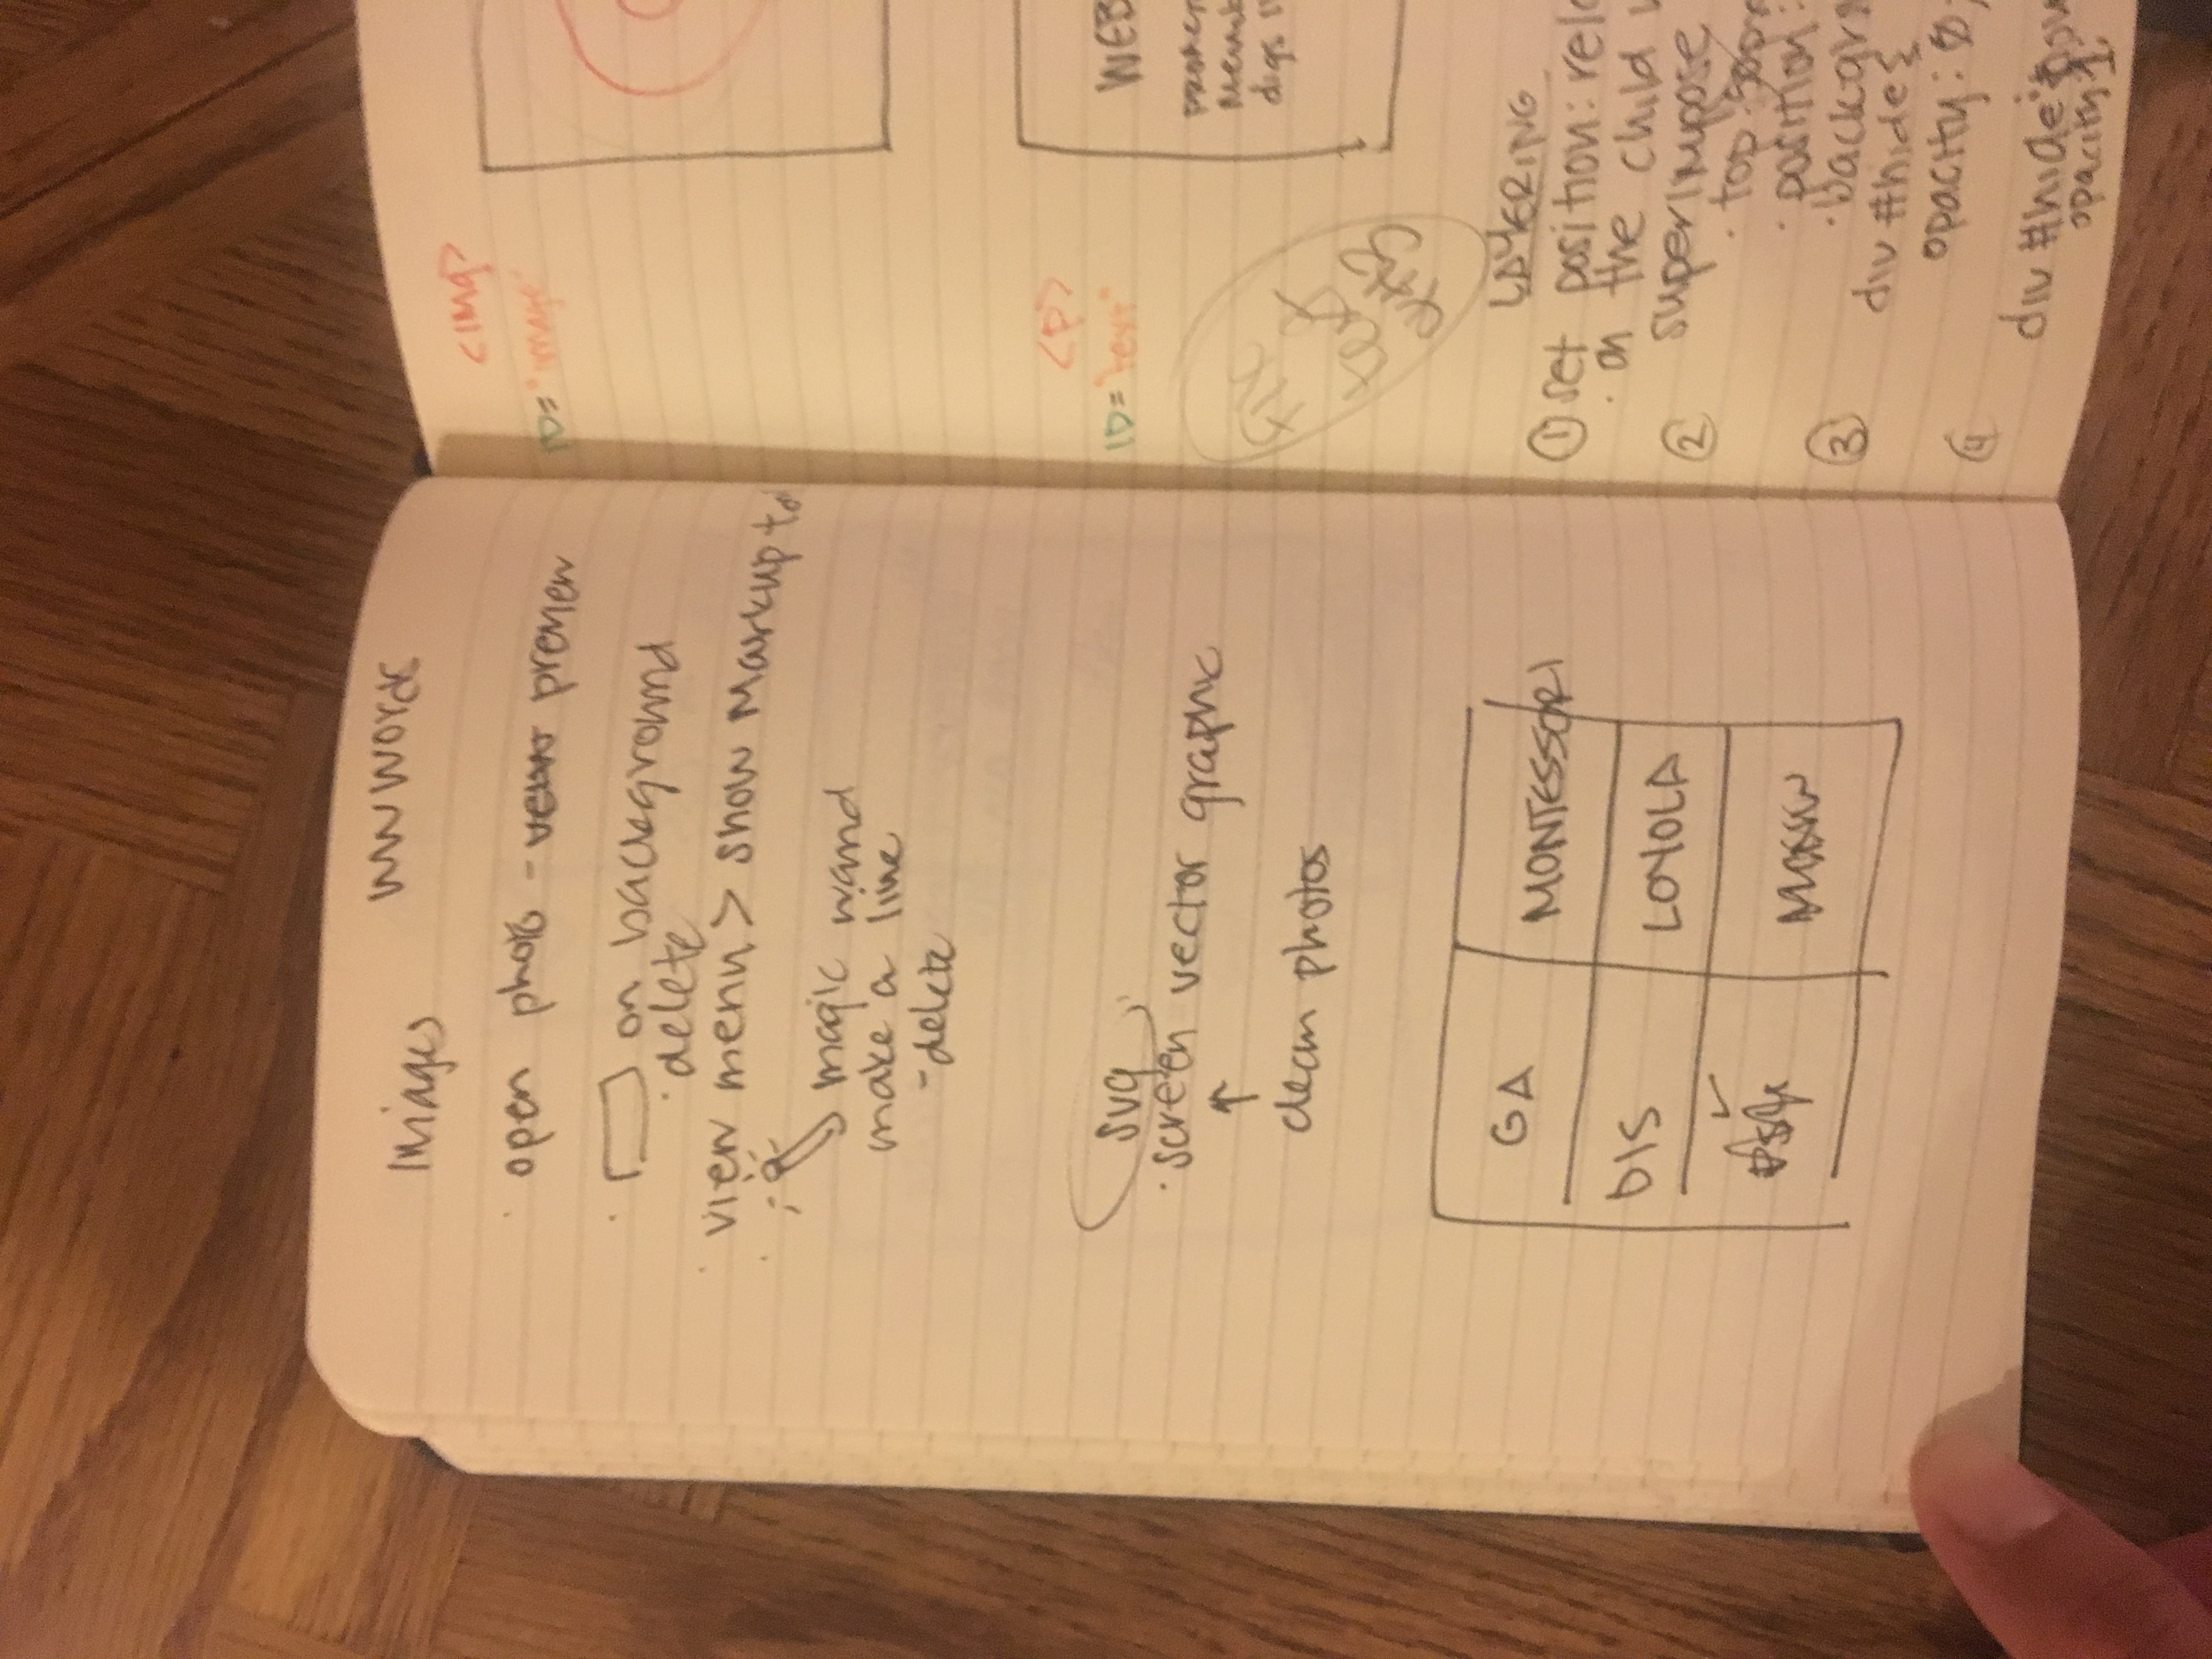 Images
open photo - preview
on background
· delete
view menu > show Markup to
magic wand
make a line
- delete
svg
· screen vector graphic
↑
clean photos
GA MONTESSORI
DIS LOYOLA
<img>
ID="image"
<p>
ID="text"
WEB
digs
text
LAYERING
① set position: rela
· on the child
② superimpose
· top:
· position:
③ · backgr
div #hide {
opacity: 0;
④
div #hide
opacity 1;